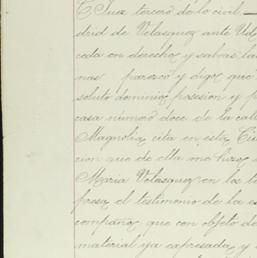 C. Juez tercero de lo civil
drid de Velasquez ante Ud
cada en derecho y salvas la
nas parezco y digo que
soluto dominio, posesion y p
casa número doce de la call
Magnolia, cita en esta Ciu
cion que de ella me hizo
Maria Velasquez en los t
presa el testimonio de la es
compaño, que con objeto de
material ya expresada y